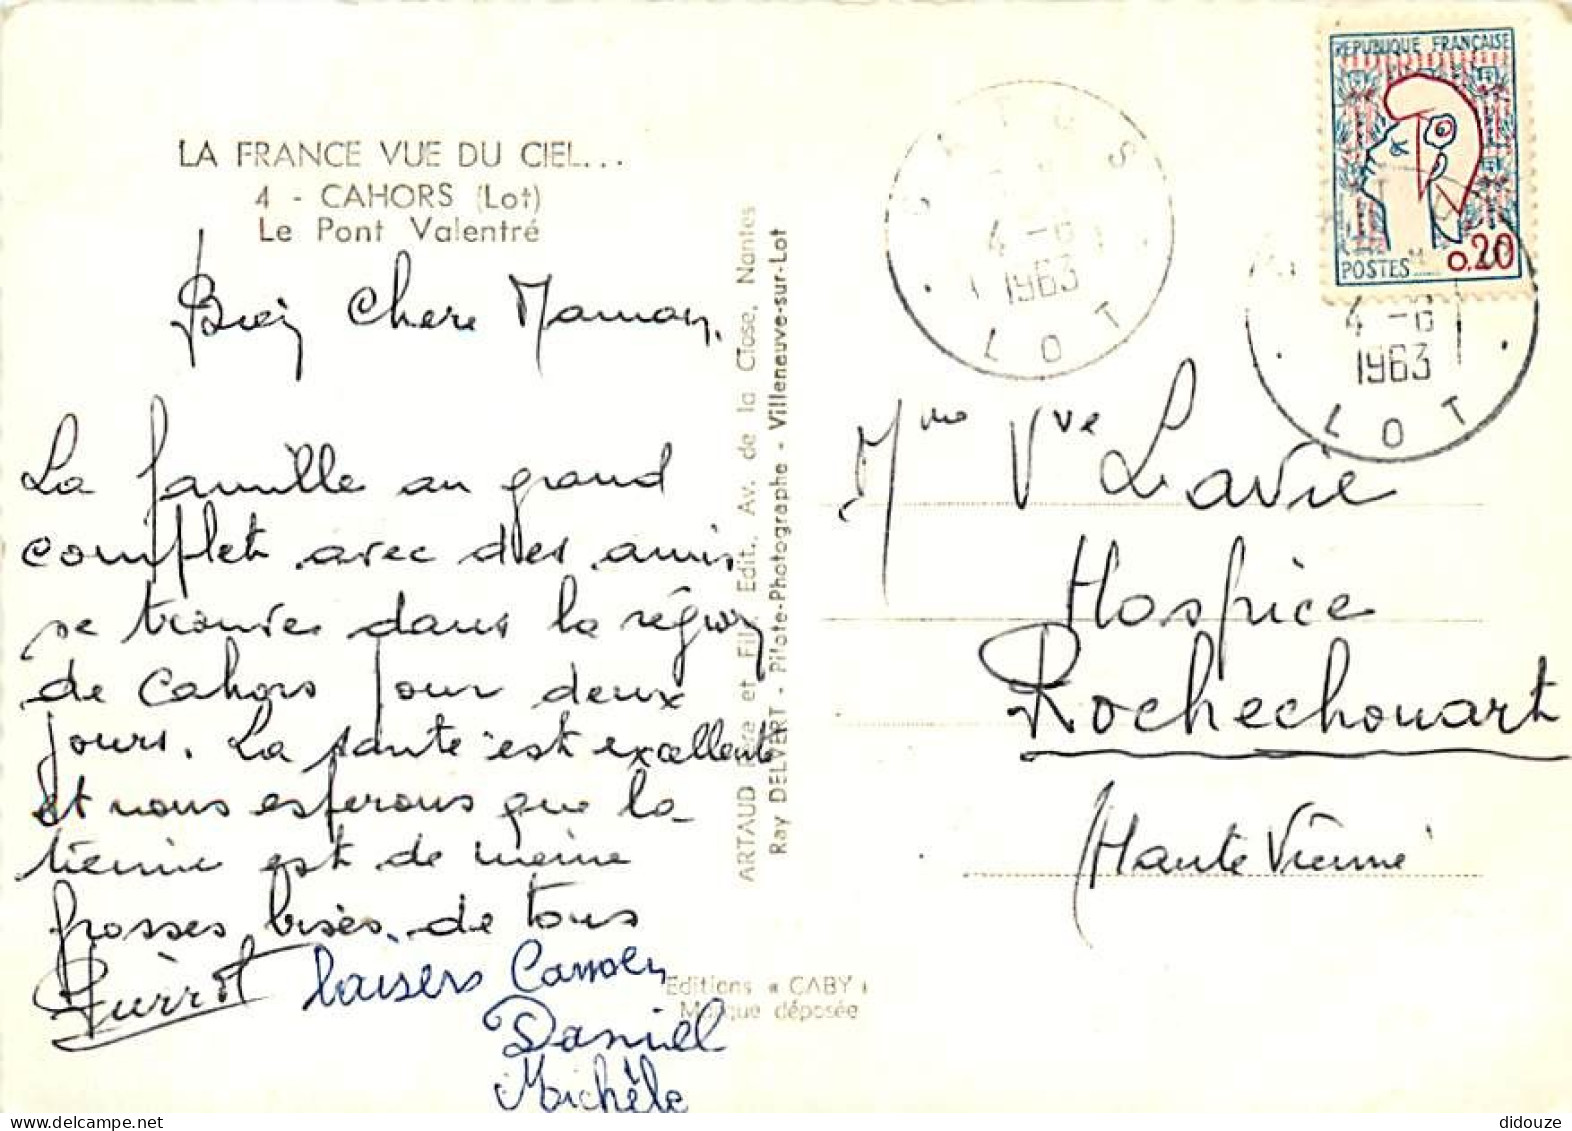 LA FRANCE VUE DU CIEL...
4 - CAHORS (Lot)
Le Pont Valentré
Bien Chere Maman.
La famille au grand
complet avec des amis
se trouve dans la région
de Cahors pour deux
jours. La santé est excellente
et nous esperons que la
tienne est de meme
grosses bises de tous
Pierrot baisers Carmen
Daniel
Michèle
ARTAUD Père et Fils, Edit., Av. de la Close, Nantes
Ray DELVERT - Pilote-Photographe - Villeneuve-sur-Lot
Editions « GABY »
Marque déposée
REPUBLIQUE FRANÇAISE
POSTES 0,20
4 -6
1963
LOT
4 -6
1963
LOT
Mme Vve Lavie
Hospice
Rochechouart
Haute Vienne
didouze